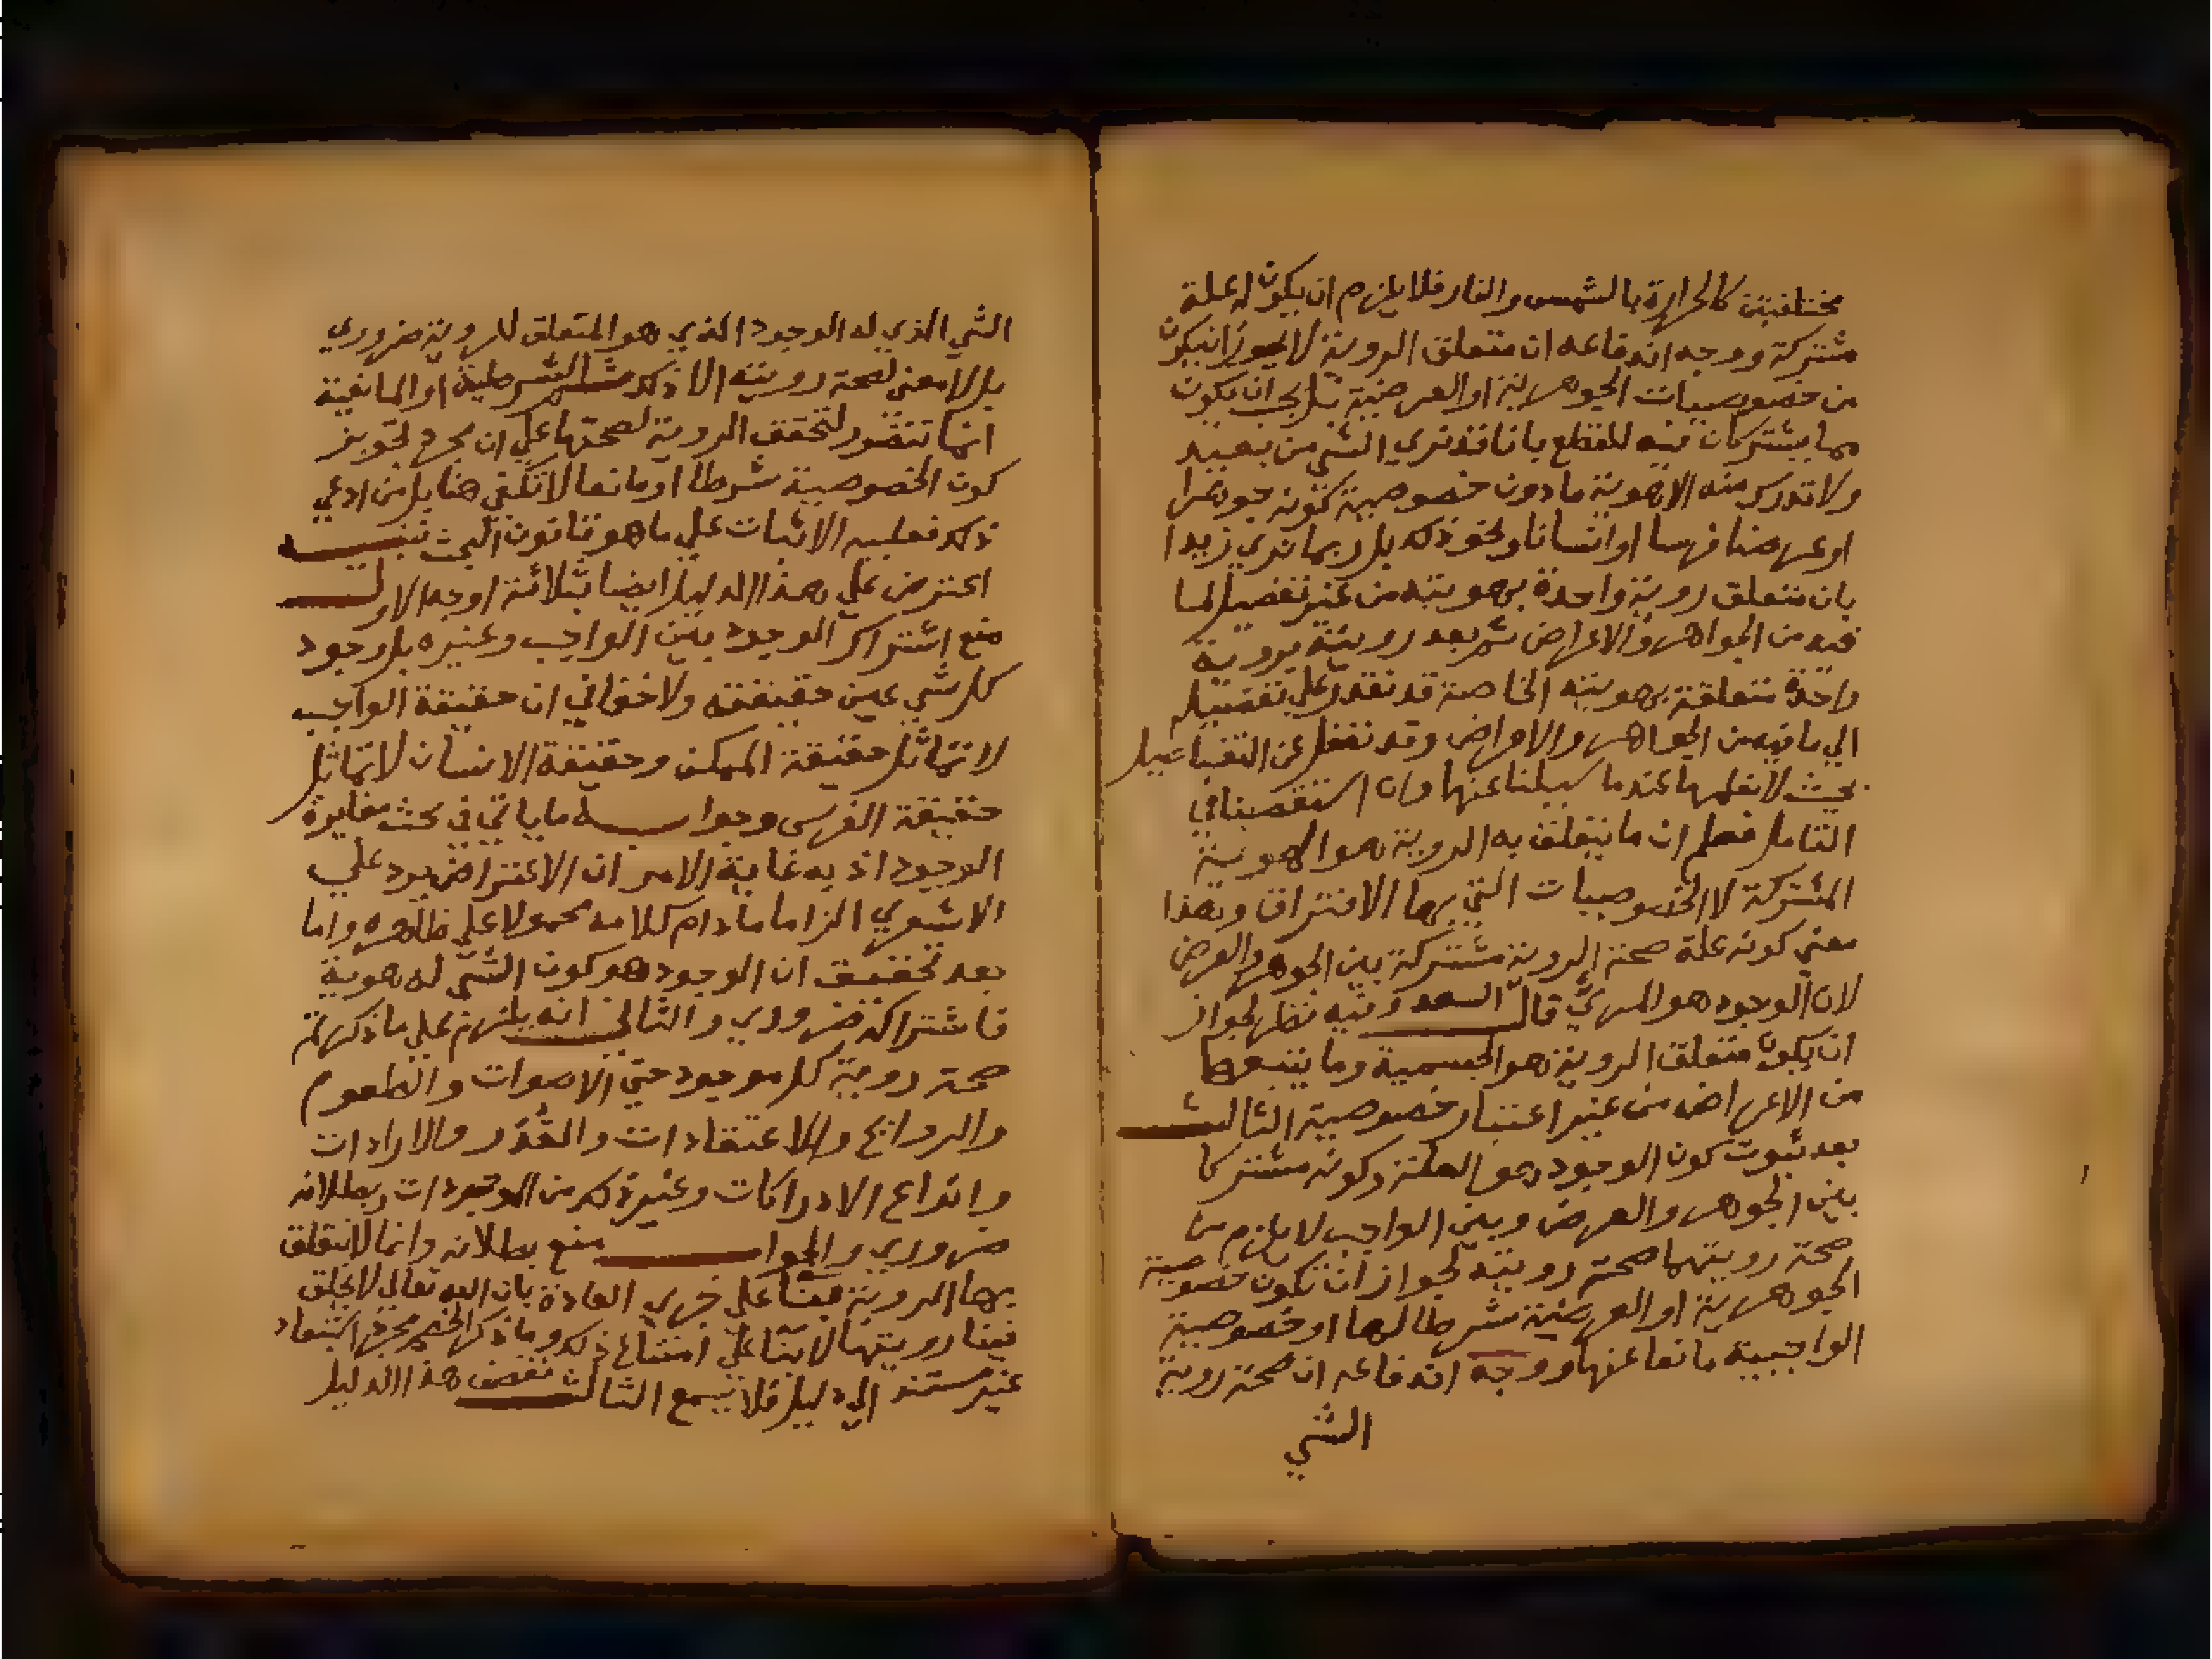 مختلفتين كالحرارة بالشمس والنار فلا يلزم ان يكون له علة
مشتركة ووجه اندفاعه ان متعلق الروية لا يجوز ان يكون
من خصوصيات الجوهرية او العرضية بل يجب ان يكون
مما يشتركان فيه للقطع بانا قد نري الشي من بعيد
ولا ندرك منه الا هوية ما دون خصوصية كونه جوهرا
او عرضا فرسا او انسانا ونحو ذلك بل ربما نري زيدا
بان تتعلق روية واحدة بهويته من غير تفصيل لما
فيه من الجواهر والاعراض ثم بعد رويته بروية
واحدة متعلقة بهويته الخاصة قد نقدر علي تفصيله
الي ما فيه من الجواهر والاعراض وقد نغفل عن التفاصيل
بحيث لا نعلمها عند ما سيلنا عنها وان استقصينا في
التامل فعلم ان ما يتعلق به الروية هو الهوية
المشتركة لا الخصوصيات التي بها الافتراق وهذا
معني كونه علة صحة الروية مشتركة بين الجوهر والعرض
لان الوجود هو المرئي قال السعد وفيه نظر لجواز
ان يكون متعلق الروية هو الجسمية وما يتبعها
من الاعراض من غير اعتبار خصوصية الثالث
بعد ثبوت كون الوجود هو العلة وكونه مشتركا
بين الجوهر والعرض وبين الواجب لا يلزم من
صحة رويتهما صحة رويته لجواز ان تكون خصوصية
الجوهرية او العرضية شرطا لها او خصوصية
الواجبية مانعا عنها ووجه اندفاعه ان صحة روية
الشي
الشي الذي له الوجود الذي هو المتعلق للروية ضروري
بل لا معني لصحة رويته الا ذلك ثم الشرطية او المانعية
انما تتصور لتحقق الروية لصحتها علي ان مجرد تجويز
كون الخصوصية شرطا او مانعا لا تكفي هنا بل من ادعي
ذلك فعليه الاثبات علي ما هو قانون البحث تنبيه
اعترض علي هذا الدليل ايضا بثلاثة اوجه الاول
منع اشتراك الوجود بين الواجب وغيره بل وجود
كل شي عين حقيقته ولا خفا في ان حقيقة الواجب
لا تماثل حقيقة الممكن وحقيقة الانسان لا تماثل
حقيقة الفرس وجوابه ما ياتي في بحث مغايرة
الوجود اذ به غاية الامر ان الاعتراض يرد علي
الاشعري الزاما ما دام كلامه محمولا علي ظاهره واما
بعد تحقيق ان الوجود هو كون الشي له هوية
فاشتراكه ضروري والثاني انه يلزم علي ما ذكرتم
صحة روية كل موجود حتي الاصوات والطعوم
والروايح والاعتقادات والقدر والارادات
وانواع الادراكات وغير ذلك من الموجودات وبطلانه
ضروري والجواب منع بطلانه وانما لا يتعلق
بها الروية بنا علي جري العادة بان الله تعالي لا يخلق
فينا رويتها لا بنا علي امتناع ذلك وما ذكره الخصم مجرد استبعاد
غير مستند الي دليل فلا يسمع الثالث نقض هذا الدليل